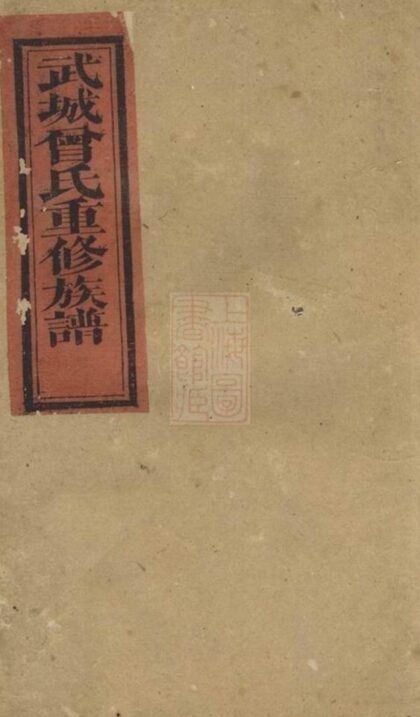 武城曾氏重修族譜
上海圖
書館臧